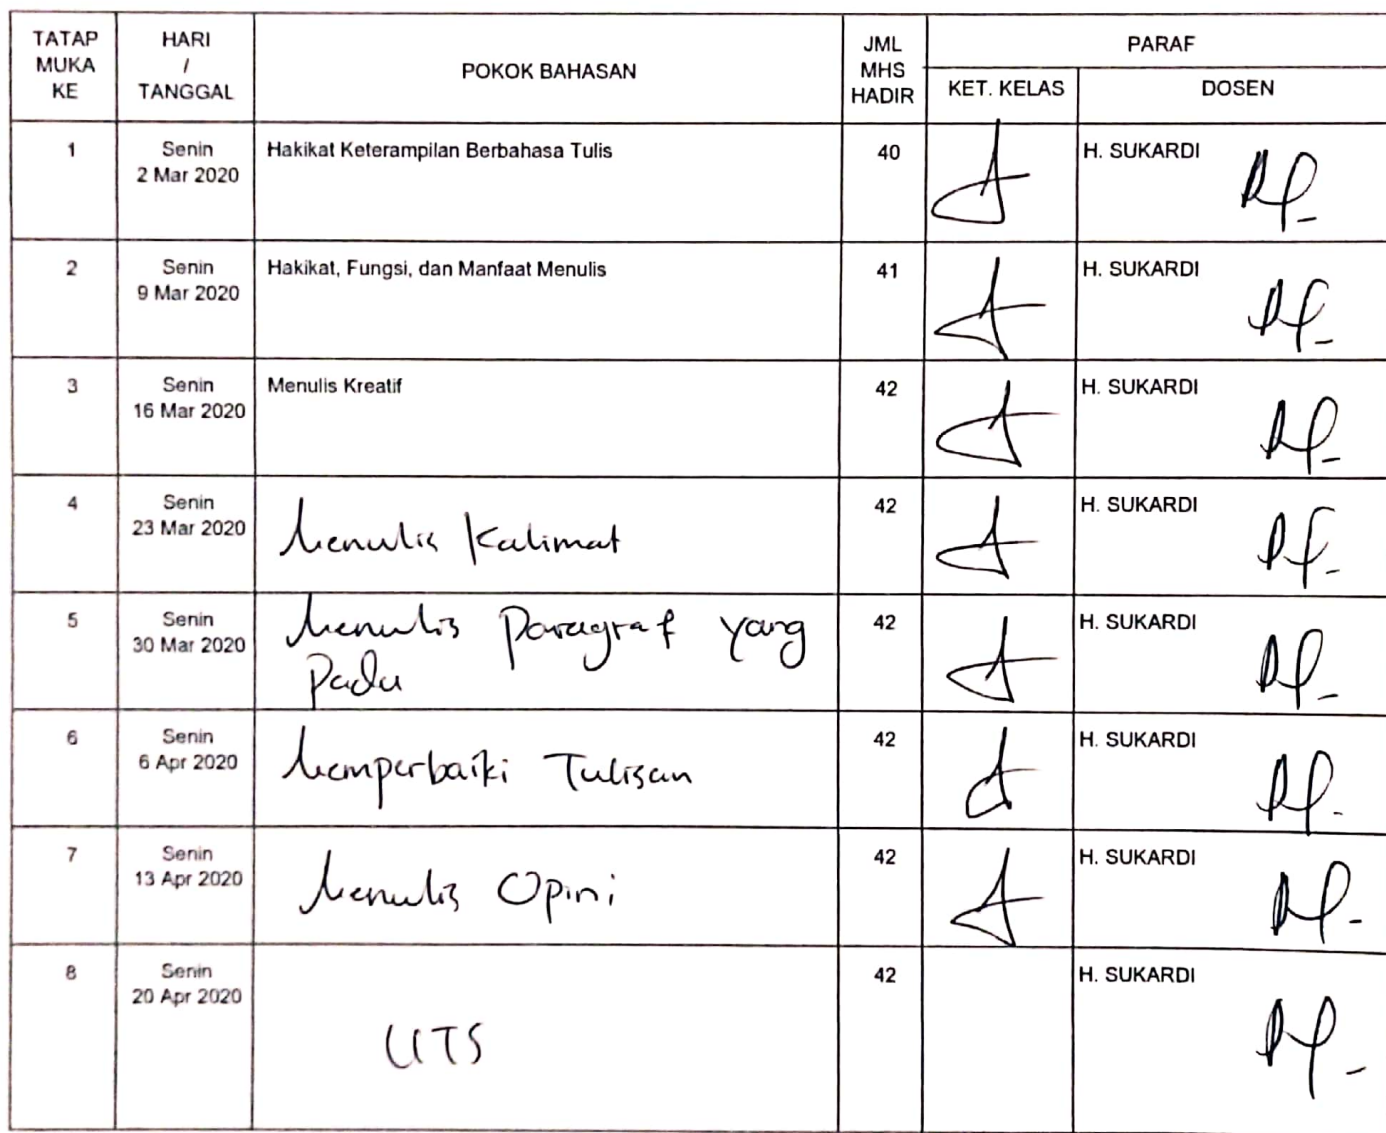 TATAP
MUKA
KE
HARI
/
TANGGAL
POKOK BAHASAN
JML
MHS
HADIR
PARAF
KET. KELAS
DOSEN
1
Senin
2 Mar 2020
Hakikat Keterampilan Berbahasa Tulis
40
H. SUKARDI
2
Senin
9 Mar 2020
Hakikat, Fungsi, dan Manfaat Menulis
41
H. SUKARDI
3
Senin
16 Mar 2020
Menulis Kreatif
42
H. SUKARDI
4
Senin
23 Mar 2020
Menulis Kalimat
42
H. SUKARDI
5
Senin
30 Mar 2020
Menulis Paragraf yang
Padu
42
H. SUKARDI
6
Senin
6 Apr 2020
Memperbaiki Tulisan
42
H. SUKARDI
7
Senin
13 Apr 2020
Menulis Opini
42
H. SUKARDI
8
Senin
20 Apr 2020
UTS
42
H. SUKARDI